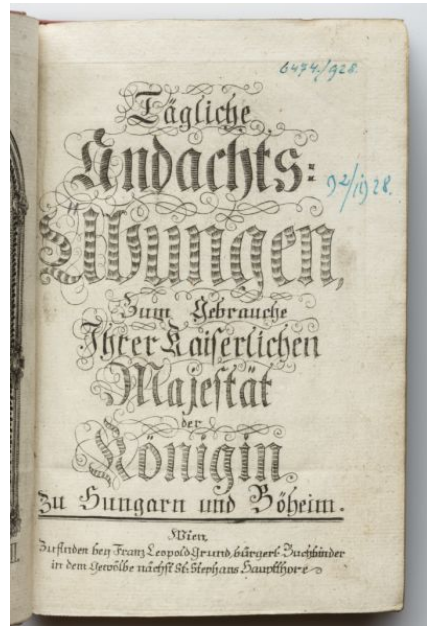 6474./928.
Tägliche
Andachts=
92/1928.
Übungen,
Zum Gebrauche
Ihrer Kaiserlichen
Majestät
der
Königin
zu Hungarn und Böheim.
Wien,
Zu finden bey Franz Leopold Grund, bürgerl. Buchbinder
in dem Gewölbe nächst St. Stephans Hauptthore